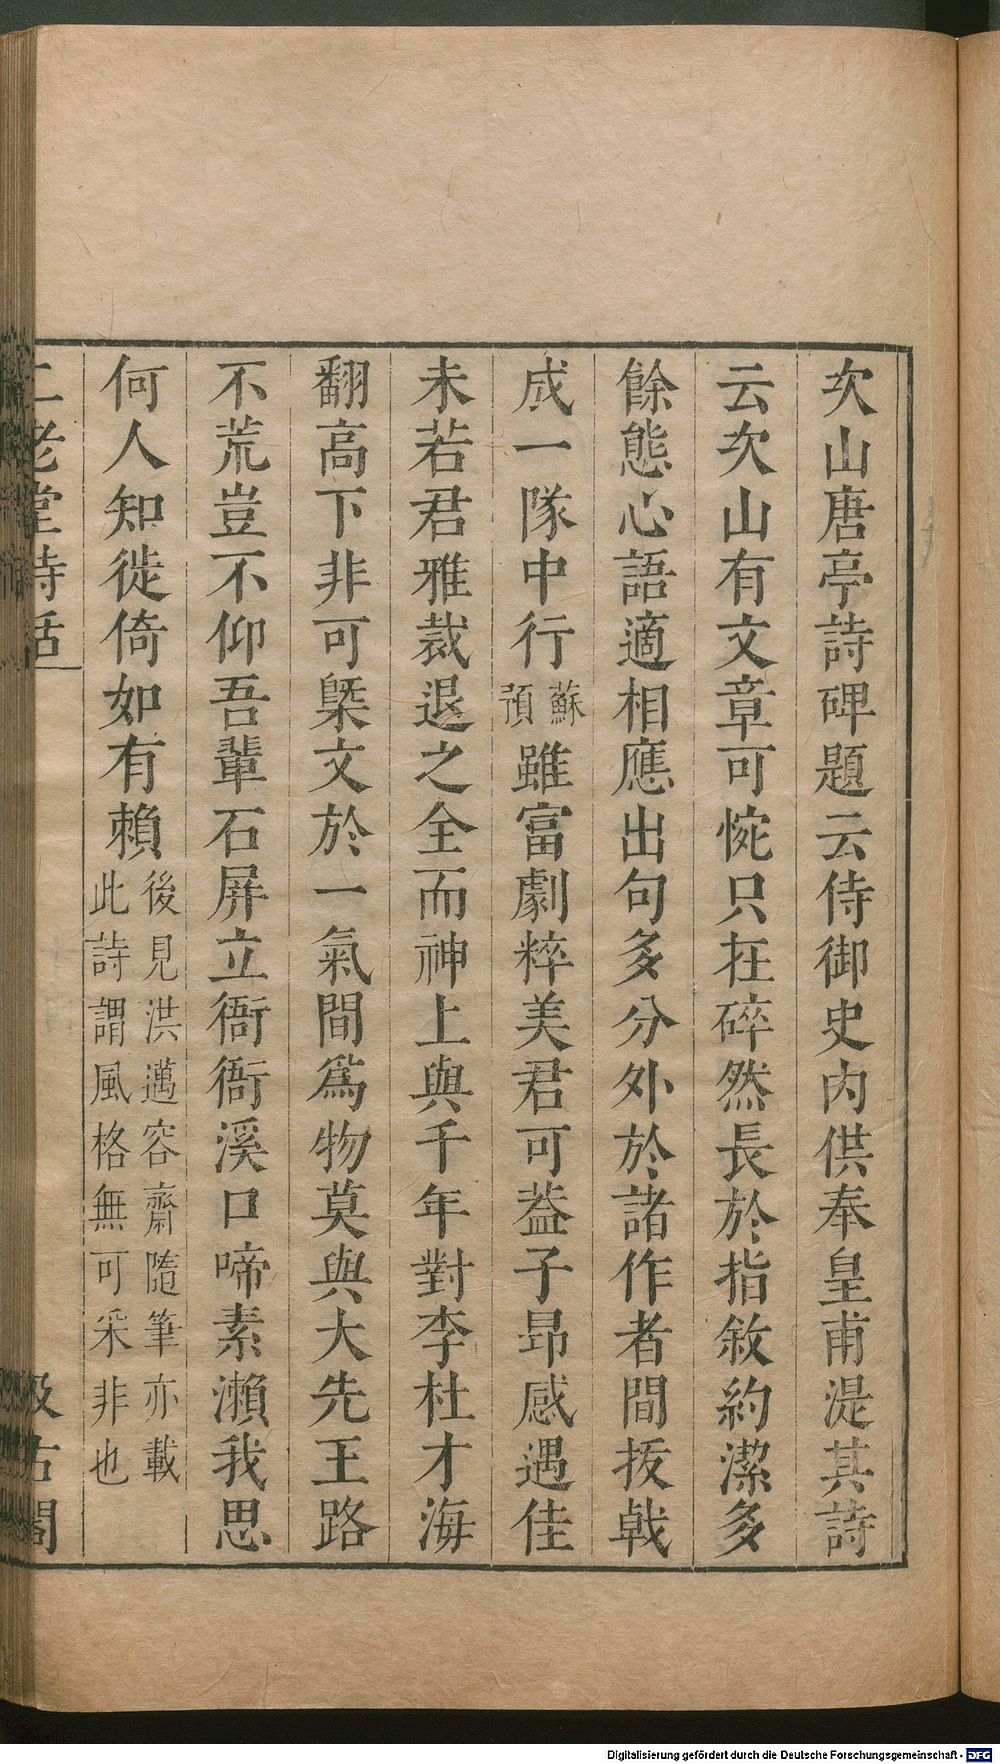 次山唐亭詩碑題云侍御史内供奉皇甫湜其詩
云次山有文章可惋只在碎然長於指敘約潔多
餘態心語適相應出句多分外於諸作者間拔戟
成一隊中行蘇預雖富劇粹美君可葢子昻感遇佳
未若君雅裁退之全而神上與千年對李杜才海
翻高下非可槩文於一氣間爲物莫與大先王路
不荒豈不仰吾輩石屏立衙衙溪口啼素瀨我思
何人知徙倚如有賴後見洪邁容齋隨筆亦載此詩謂風格無可采非也
二老堂詩話
汲古閣
Digitalisierung gefördert durch die Deutsche Forschungsgemeinschaft - DFG